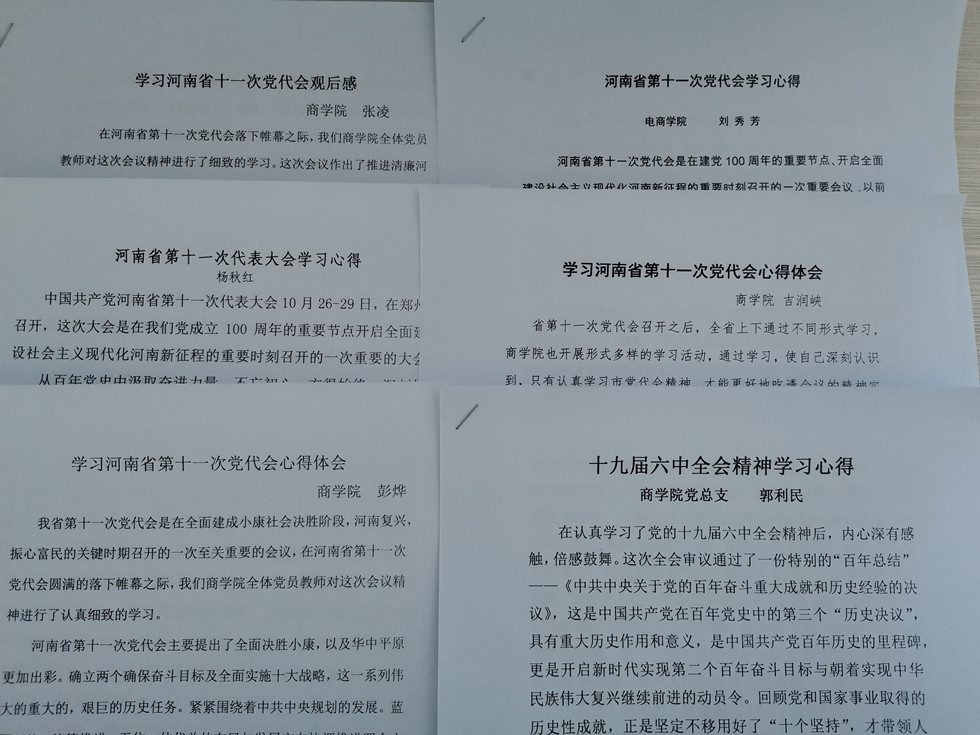 学习河南省十一次党代会观后感
商学院 张凌
在河南省第十一次党代会落下帷幕之际，我们商学院全体党员
教师对这次会议精神进行了细致的学习。这次会议作出了推进清廉河
河南省第十一次党代会学习心得
电商学院 刘秀芳
河南省第十一次党代会是在建党 100 周年的重要节点、开启全面
建设社会主义现代化河南新征程的重要时刻召开的一次重要会议，以前
河南省第十一次代表大会学习心得
杨秋红
中国共产党河南省第十一次代表大会 10 月 26-29 日，在郑州
召开，这次大会是在我们党成立 100 周年的重要节点开启全面建
设社会主义现代化河南新征程的重要时刻召开的一次重要的大会
从百年党史中汲取奋进力量，不忘初心，方得始终。
学习河南省第十一次党代会心得体会
商学院 吉润峡
省第十一次党代会召开之后，全省上下通过不同形式学习，
商学院也开展形式多样的学习活动，通过学习，使自己深刻认识
到，只有认真学习市党代会精神，才能更好地吃透会议的精神实
学习河南省第十一次党代会心得体会
商学院 彭烨
我省第十一次党代会是在全面建成小康社会决胜阶段，河南复兴，
振心富民的关键时期召开的一次至关重要的会议，在河南省第十一次
党代会圆满的落下帷幕之际，我们商学院全体党员教师对这次会议精
神进行了认真细致的学习。
河南省第十一次党代会主要提出了全面决胜小康，以及华中平原
更加出彩。确立两个确保奋斗目标及全面实施十大战略，这一系列伟
大的重大的，艰巨的历史任务。紧紧围绕着中共中央规划的发展。蓝
十九届六中全会精神学习心得
商学院党总支 郭利民
在认真学习了党的十九届六中全会精神后，内心深有感
触，倍感鼓舞。这次全会审议通过了一份特别的“百年总结”
——《中共中央关于党的百年奋斗重大成就和历史经验的决
议》，这是中国共产党在百年党史中的第三个“历史决议”，
具有重大历史作用和意义，是中国共产党百年历史的里程碑，
更是开启新时代实现第二个百年奋斗目标与朝着实现中华
民族伟大复兴继续前进的动员令。回顾党和国家事业取得的
历史性成就，正是坚定不移用好了“十个坚持”，才带领人